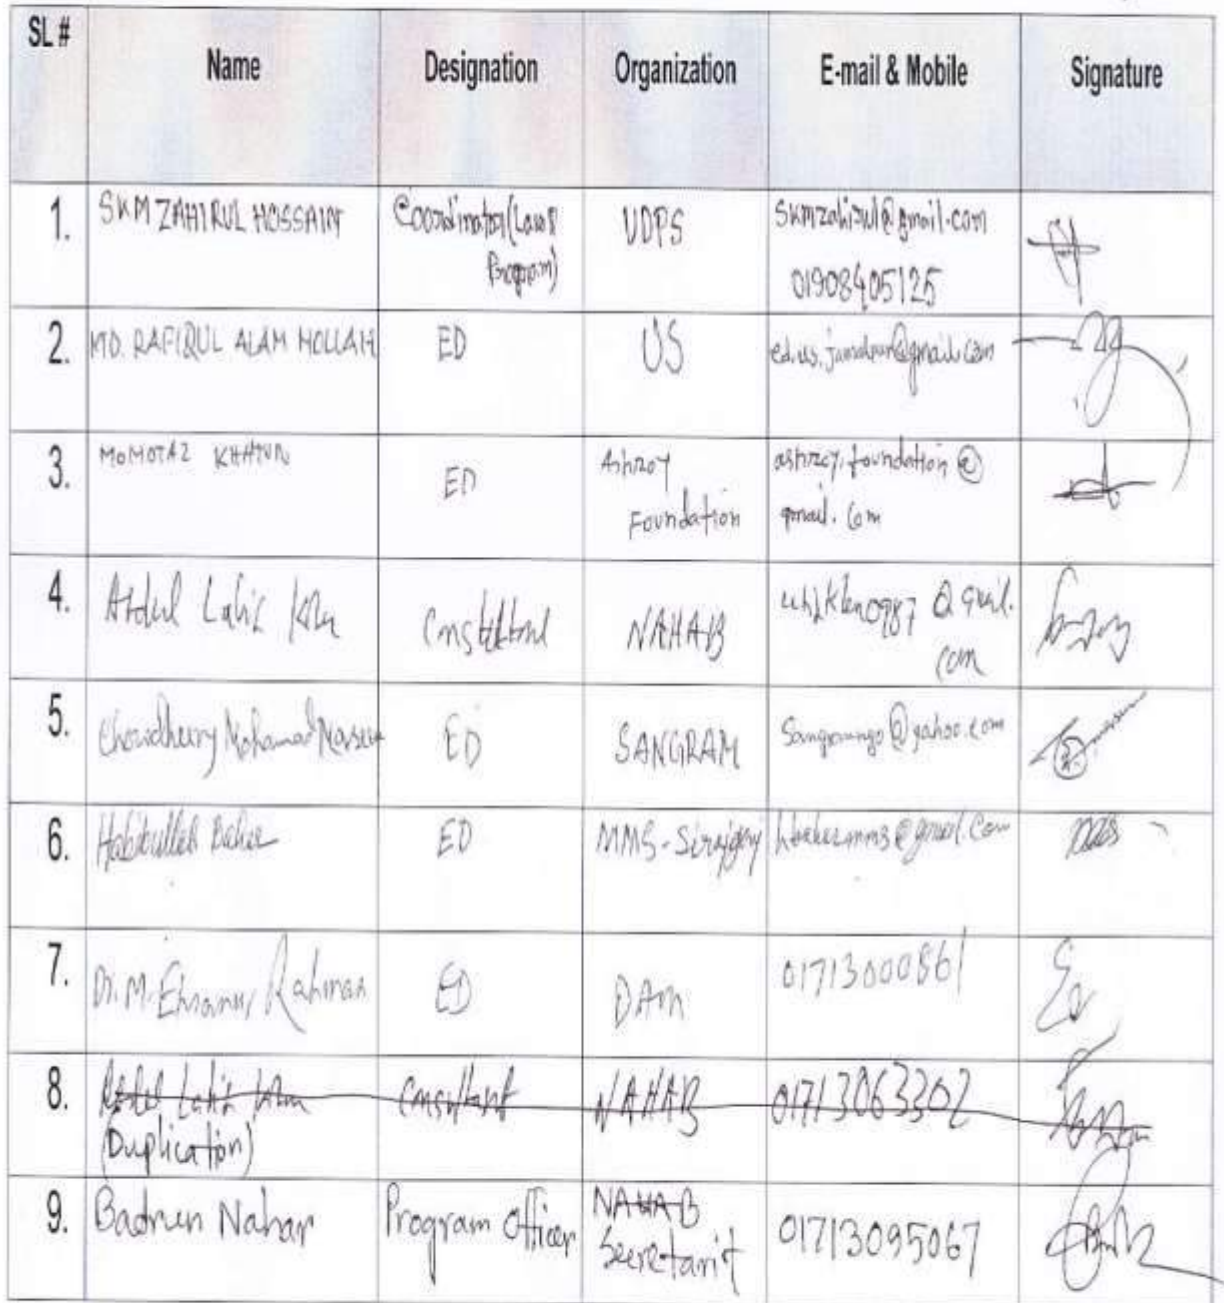 SL #
Name
Designation
Organization
E-mail & Mobile
Signature
1.
SKM ZAHIRUL HOSSAIN
Coordinator(
Program)
UDPS
skmzahirul@gmail.com
01908405125
2.
MD. RAFIQUL ALAM MOLLAH
ED
US
3.
MOMOTAZ KHATUN
ED
Ashroy
Foundation
ashroy.foundation @
gmail.com
4.
Abdul Latif Khan
Consultant
NAHAB
@ gmail.
com
5.
Chowdheury Mohamad
ED
SANGRAM
Sangramngo@yahoo.com
6.
Habibullah
ED
MMS-
@gmail.com
7.
Dr. M. Ehsanur Rahman
ED
DAM
01713000861
8.
Abdul Latif Khan
(Duplication)
Consultant
NAHAB
01713063302
9.
Badrun Nahar
Program Officer
NAHAB
Secretarit
01713095067